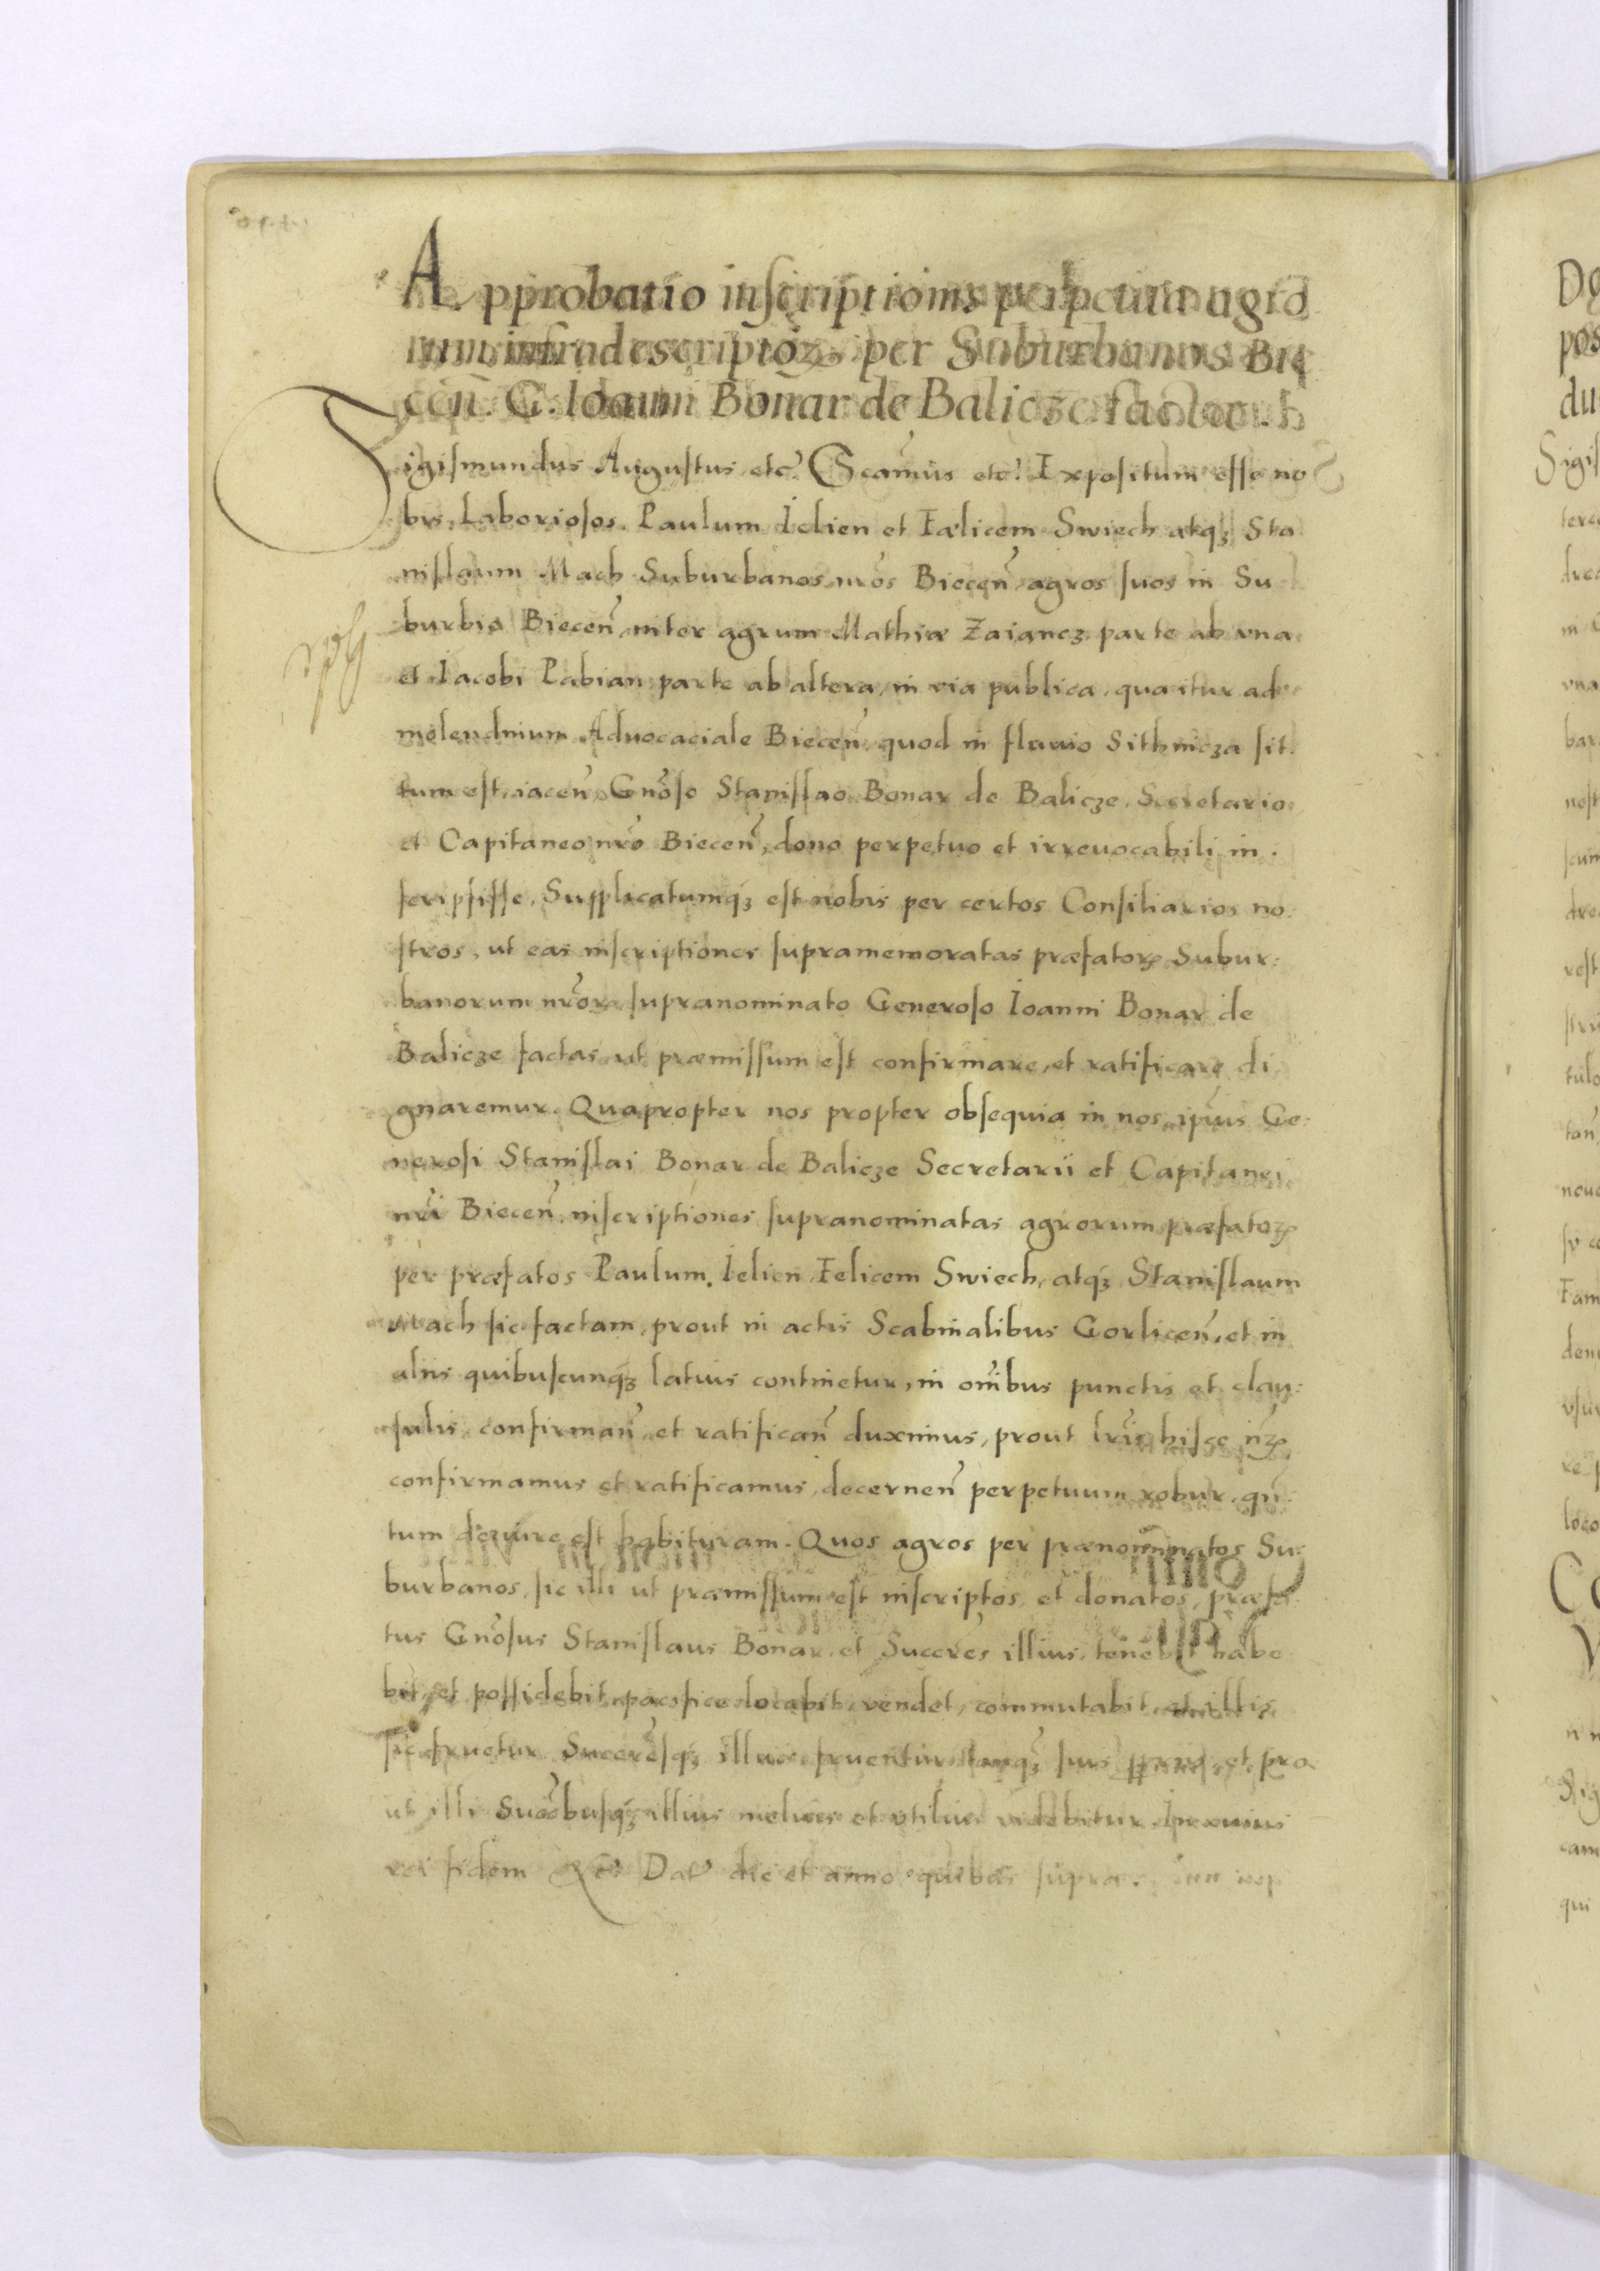 Approbatio inscriptionis perpetuae agro
rum infradescriptoꝝ per Suburbanos Bie
cen̄. G. Ioanni Bonar de Balicze factae.
Sigismundus Augustus etc̄. Scamūs etc̄. Expositum esse no
bis, Laboriosos Paulum Ielien et Fælicem Swiech atqꝫ Sta
nislaum Mach Suburbanos nr̄os Biecen̄ agros suos in Su
burbio Biecen̄ inter agrum Mathiæ Zaiancz parte ab vna
et Iacobi Pabian parte ab altera, in via publica, qua itur ad
molendinum Aduocaciale Biecen̄ quod in fluuio Sithnicza sit
tum est, iacen̄ Gnōso Stanislao Bonar de Balicze, Secretario
et Capitaneo nr̄o Biecen̄, dono perpetuo et irreuocabili in
scripsisse, Supplicatumqꝫ est nobis per certos Consiliarios no
stros, ut eas inscriptiones supramemoratas præfatoꝝ Subur:
banorum nr̄oꝝ supranominato Generoso Ioanni Bonar de
Balicze factas ut præmissum est confirmare, et ratificare di
gnaremur. Quapropter nos propter obsequia in nos ip̄ius Ge:
nerosi Stanislai Bonar de Balicze Secretarii et Capitanei
nr̄i Biecen̄, inscriptiones supranominatas agrorum præfatoꝝ
per præfatos Paulum Ielien Felicem Swiech, atqꝫ Stanislaum
Mach sic factam, prout in actis Scabinalibus Gorlicen̄, et in
aliis quibuscunqꝫ latius continetur, in om̄ibus punctis et clau:
sulis, confirman̄ et ratifican̄ duximus, prout lr̄is hisce nr̄is
confirmamus et ratificamus, decernen̄ perpetuum robur, qn̄
tum de iure est habituram. Quos agros per prænominatos Su:
burbanos, sic illi ut præmissum est inscriptos, et donatos, præfa
tus Gnōsus Stanislaus Bonar, et Succr̄es illius, tenebit habe
bit, et possidebit pacifice locabit, vendet, commutabit, et illis
sic fruetur Succr̄esqꝫ illius fruentur tanqꝫ suis et pro
ut illi Succ̄busqꝫ illius melius et vtilius videbitur. In cuius
rei fidem etc̄. Dat̄ die et anno quibus supra.